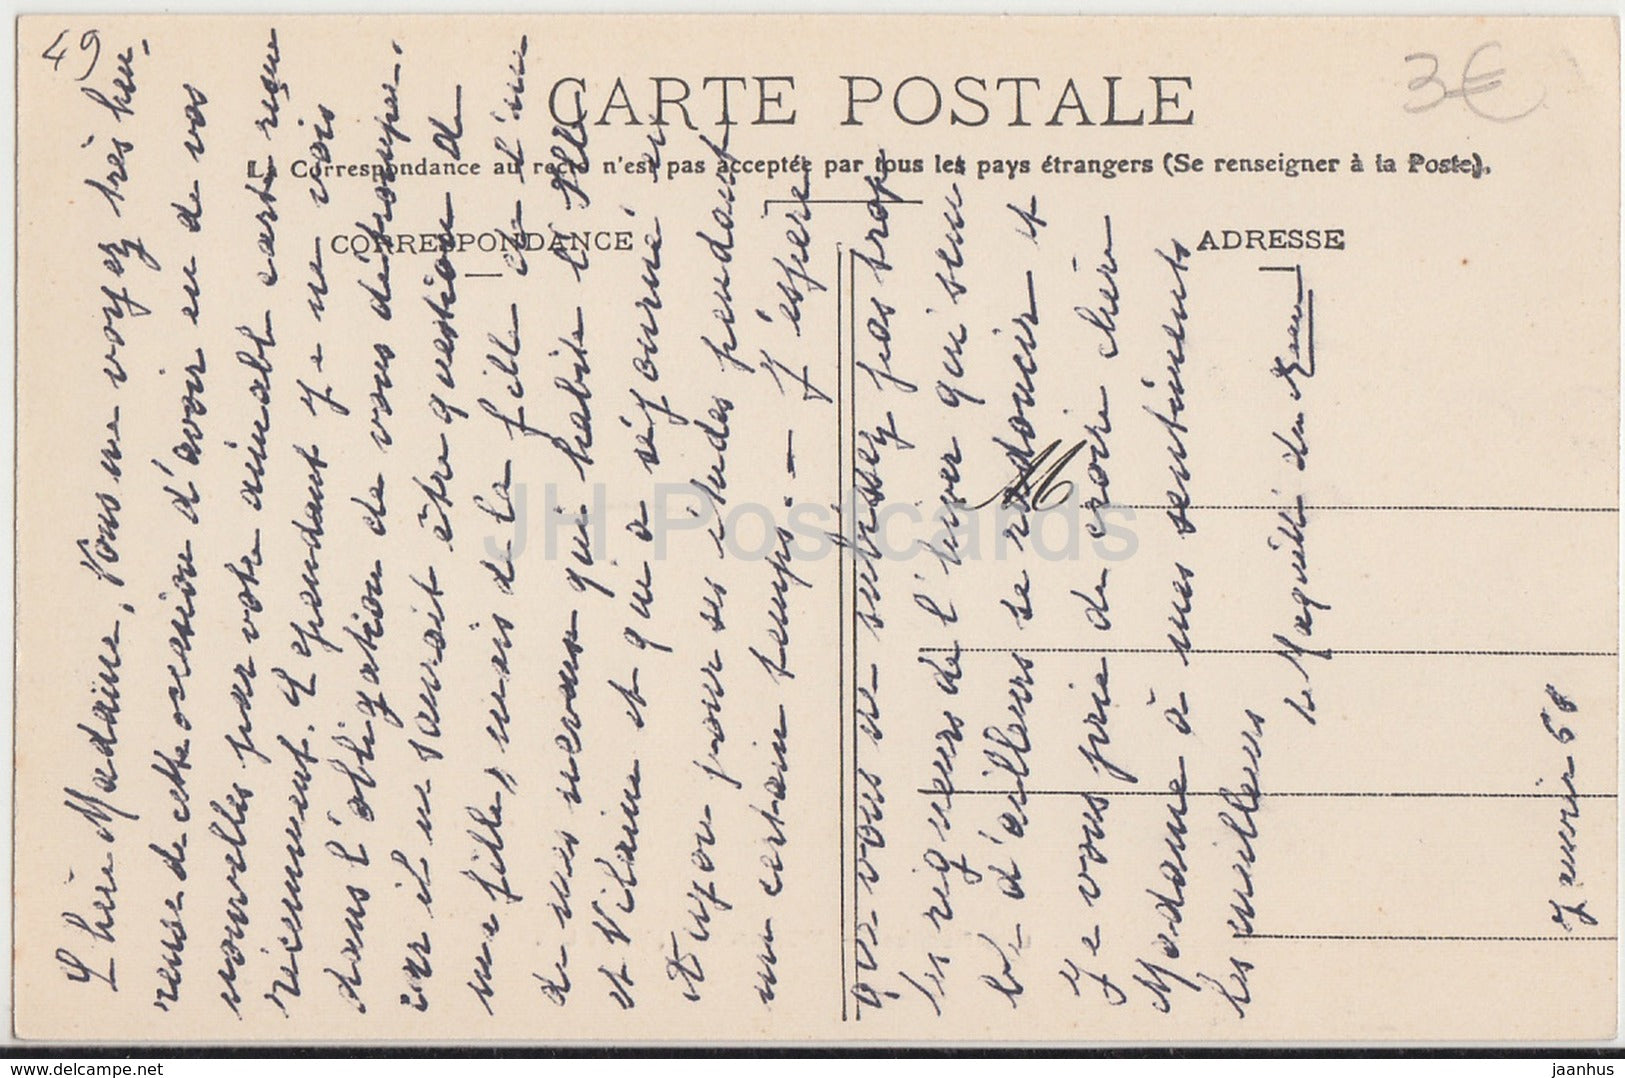 49
3€
CARTE POSTALE
Correspondance au recto n'est pas acceptée par tous les pays étrangers (Se renseigner à la Poste).
CORRESPONDANCE
ADRESSE
M
Chère Madame, Vous me voyez très heu-
reuse de cette occasion d'avoir eu de vos
nouvelles par votre aimable carte reçue
récemment. Cependant je me vois
dans l'obligation de vous détromper.
car il ne saurait être question de
ma fille, mais de la fille de l'un
de mes neveux qui habite l'Ille
et Vilaine et qui a séjourné au
pour ses études pendant
un certain temps. - J'espère
que vous ne subissez pas trop
les rigueurs de l'hiver qui semble
d'ailleurs se radoucir et
Je vous prie de croire chère
Madame à mes sentiments
les meilleurs
de Maquillé du
Janvier 68
JH Postcards
delcampe.net
jaanhus